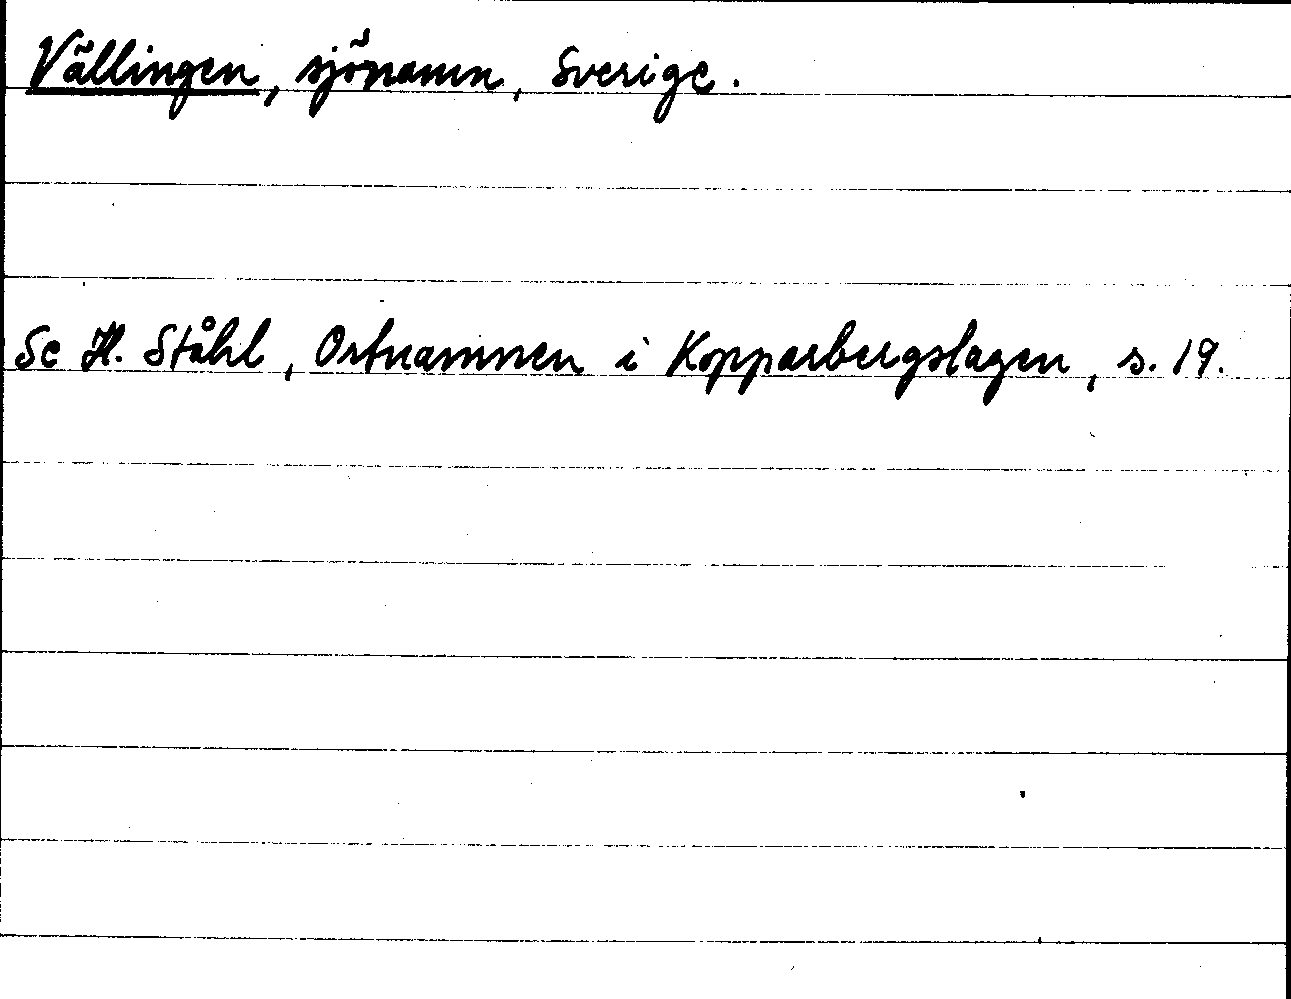 Vällingen, sjönamn, Sverige.
Se H. Ståhl, Ortnamnen i Kopparbergslagen, s. 19.